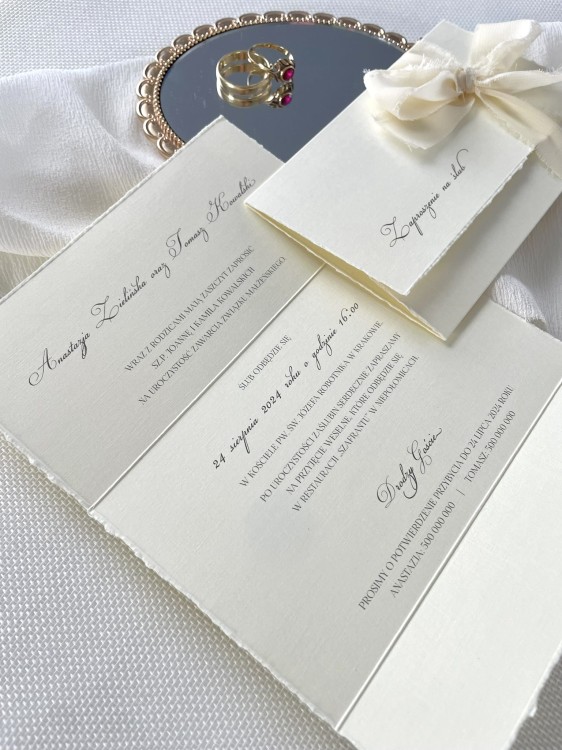 Zaproszenie na ślub
Anastazja Zielińska oraz Tomasz Kowalski
WRAZ Z RODZICAMI MAJĄ ZASZCZYT ZAPROSIĆ
SZ.P. JOANNĘ I KAMILA KOWALSKICH
NA UROCZYSTOŚĆ ZAWARCIA ZWIĄZKU MAŁŻEŃSKIEGO
ŚLUB ODBĘDZIE SIĘ
24 sierpnia 2024 roku o godzinie 16:00
W KOŚCIELE PW. ŚW. JÓZEFA ROBOTNIKA W KRAKOWIE
PO UROCZYSTOŚCI ZAŚLUBIN SERDECZNIE ZAPRASZAMY
NA PRZYJĘCIE WESELNE, KTÓRE ODBĘDZIE SIĘ
W RESTAURACJI „SZAFRANTI” W NIEPOŁOMICACH.
Drodzy Goście
PROSIMY O POTWIERDZENIE PRZYBYCIA DO 24 LIPCA 2024 ROKU
ANASTAZJA: 500 000 000 | TOMASZ: 500 000 000